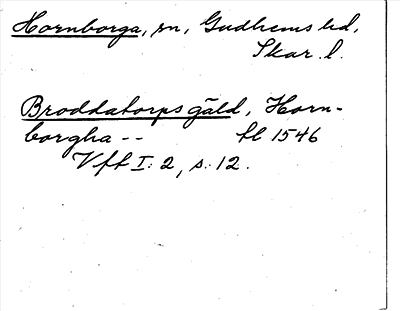 Hornborga, sn, Gudhems hd,
Skar. l.
Broddatorps gäld, Horn-
borgha -- fl 1546
Vff I: 2, s. 12.